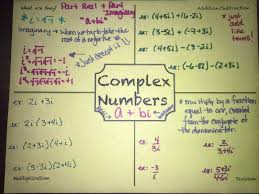 What are they?
Part Real + Part Imaginary
* i = √-1 *
"a + bi"
Imaginary → when we try to take the root of a negative
*just accept it*
i = √-1
Addition/Subtraction
ex: (4+5i) + (6-2i)
*just add like terms!
ex: (3-5i) + (-7+3i)
ex: (4+5i) - (3-2i)
ex: (-6-8i) - (2+3i)
Complex Numbers
a + bi
ex: 2i + 3i
ex: 2i (3+4i)
ex: (2+3i)(4+i)
ex: (5-3i)(2+4i)
Multiplication
*multiply by a fraction equal to one, created from the conjugate of the denominator.
ex: 4/3i
ex: 2/3+4i
ex: -3/i
ex:
Division